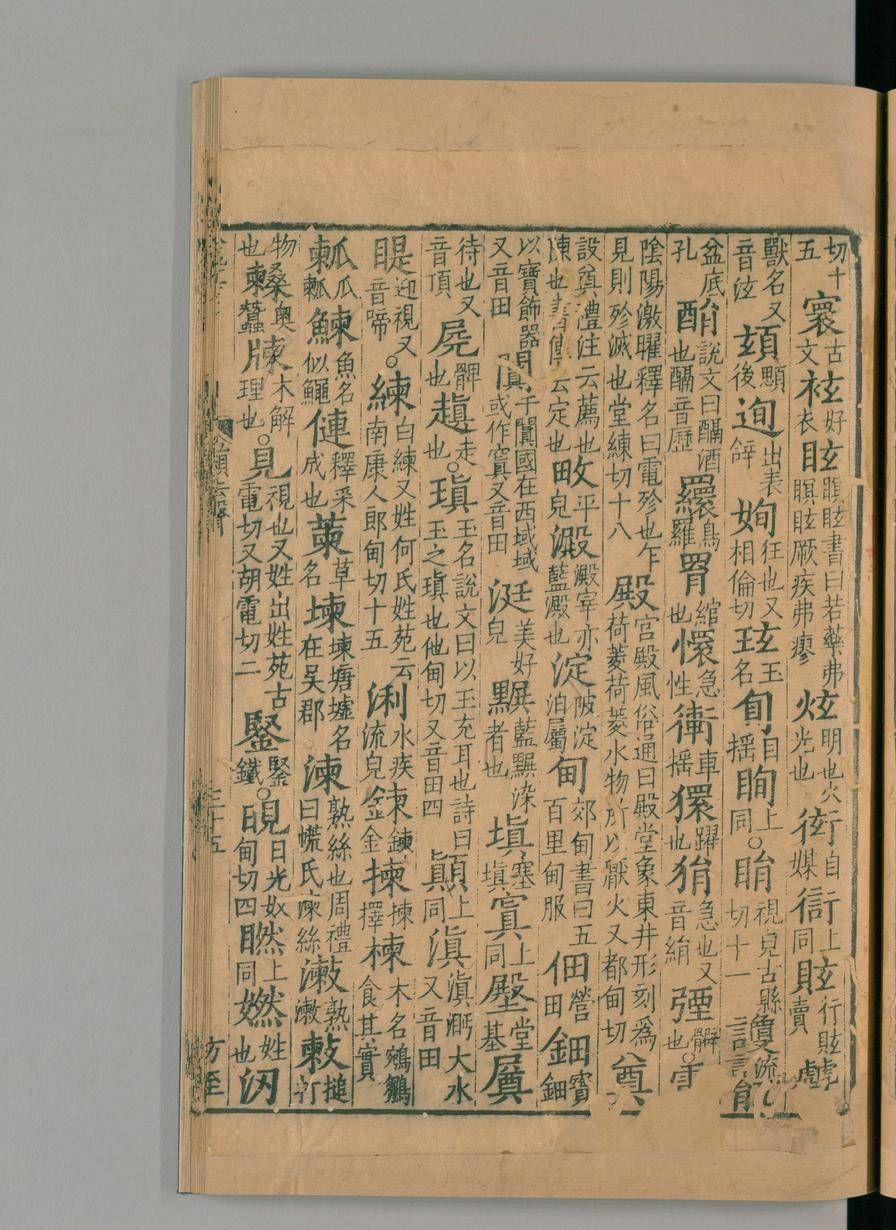 切十五寰古文袨好衣眩瞑眩書曰若藥弗瞑眩厥疾弗瘳炫明也火光也衒自媒衙上同眩行賣
獸名又音泫後迿出表辝姰狂也又相倫切玹玉名旬目搖眴上同○睊視皃古縣切十一讂流言
盆底孔酳說文曰醨酒也醨音歷羂鳥羅罥綰也懁急性車搖獧躍也狷急也又音絹弲也○電
陰陽激曜釋名曰電殄也乍見則殄滅也堂練切十八殿宮殿風俗通曰殿堂象東井形刻為荷菱荷菱水物所以厭火又都甸切奠
設奠禮注云薦也陳也書傳云定也畋平皃澱澱滓亦藍澱也淀陂淀泊屬甸郊甸書曰五百里甸服佃營田鈿寶鈿
以寶飾器又音田闐于闐國在西域域或作窴又音田涏美好皃藍染者也填塞填窴上同壂堂基
待也又音頂髀也走也○瑱玉名說文曰以玉充耳也詩曰玉之瑱也他甸切又音田四上同滇滇㴐大水又音田
睼迎視又音啼○練白練又姓何氏姓苑云南康人郎甸切十五浰水疾流皃鍊鍊金揀揀擇楝木名鵷鶵食其實
瓜鰊魚名似鱦僆釋采成也萰草名堜堜塘墟名在吳郡湅熟絲也周禮曰㡛氏湅絲熟搥打
物也木解理也○見視也又姓出姓苑古電切又胡電切二鋻堅鐵○晛日光奴甸切四上同姓也
三十五
方至